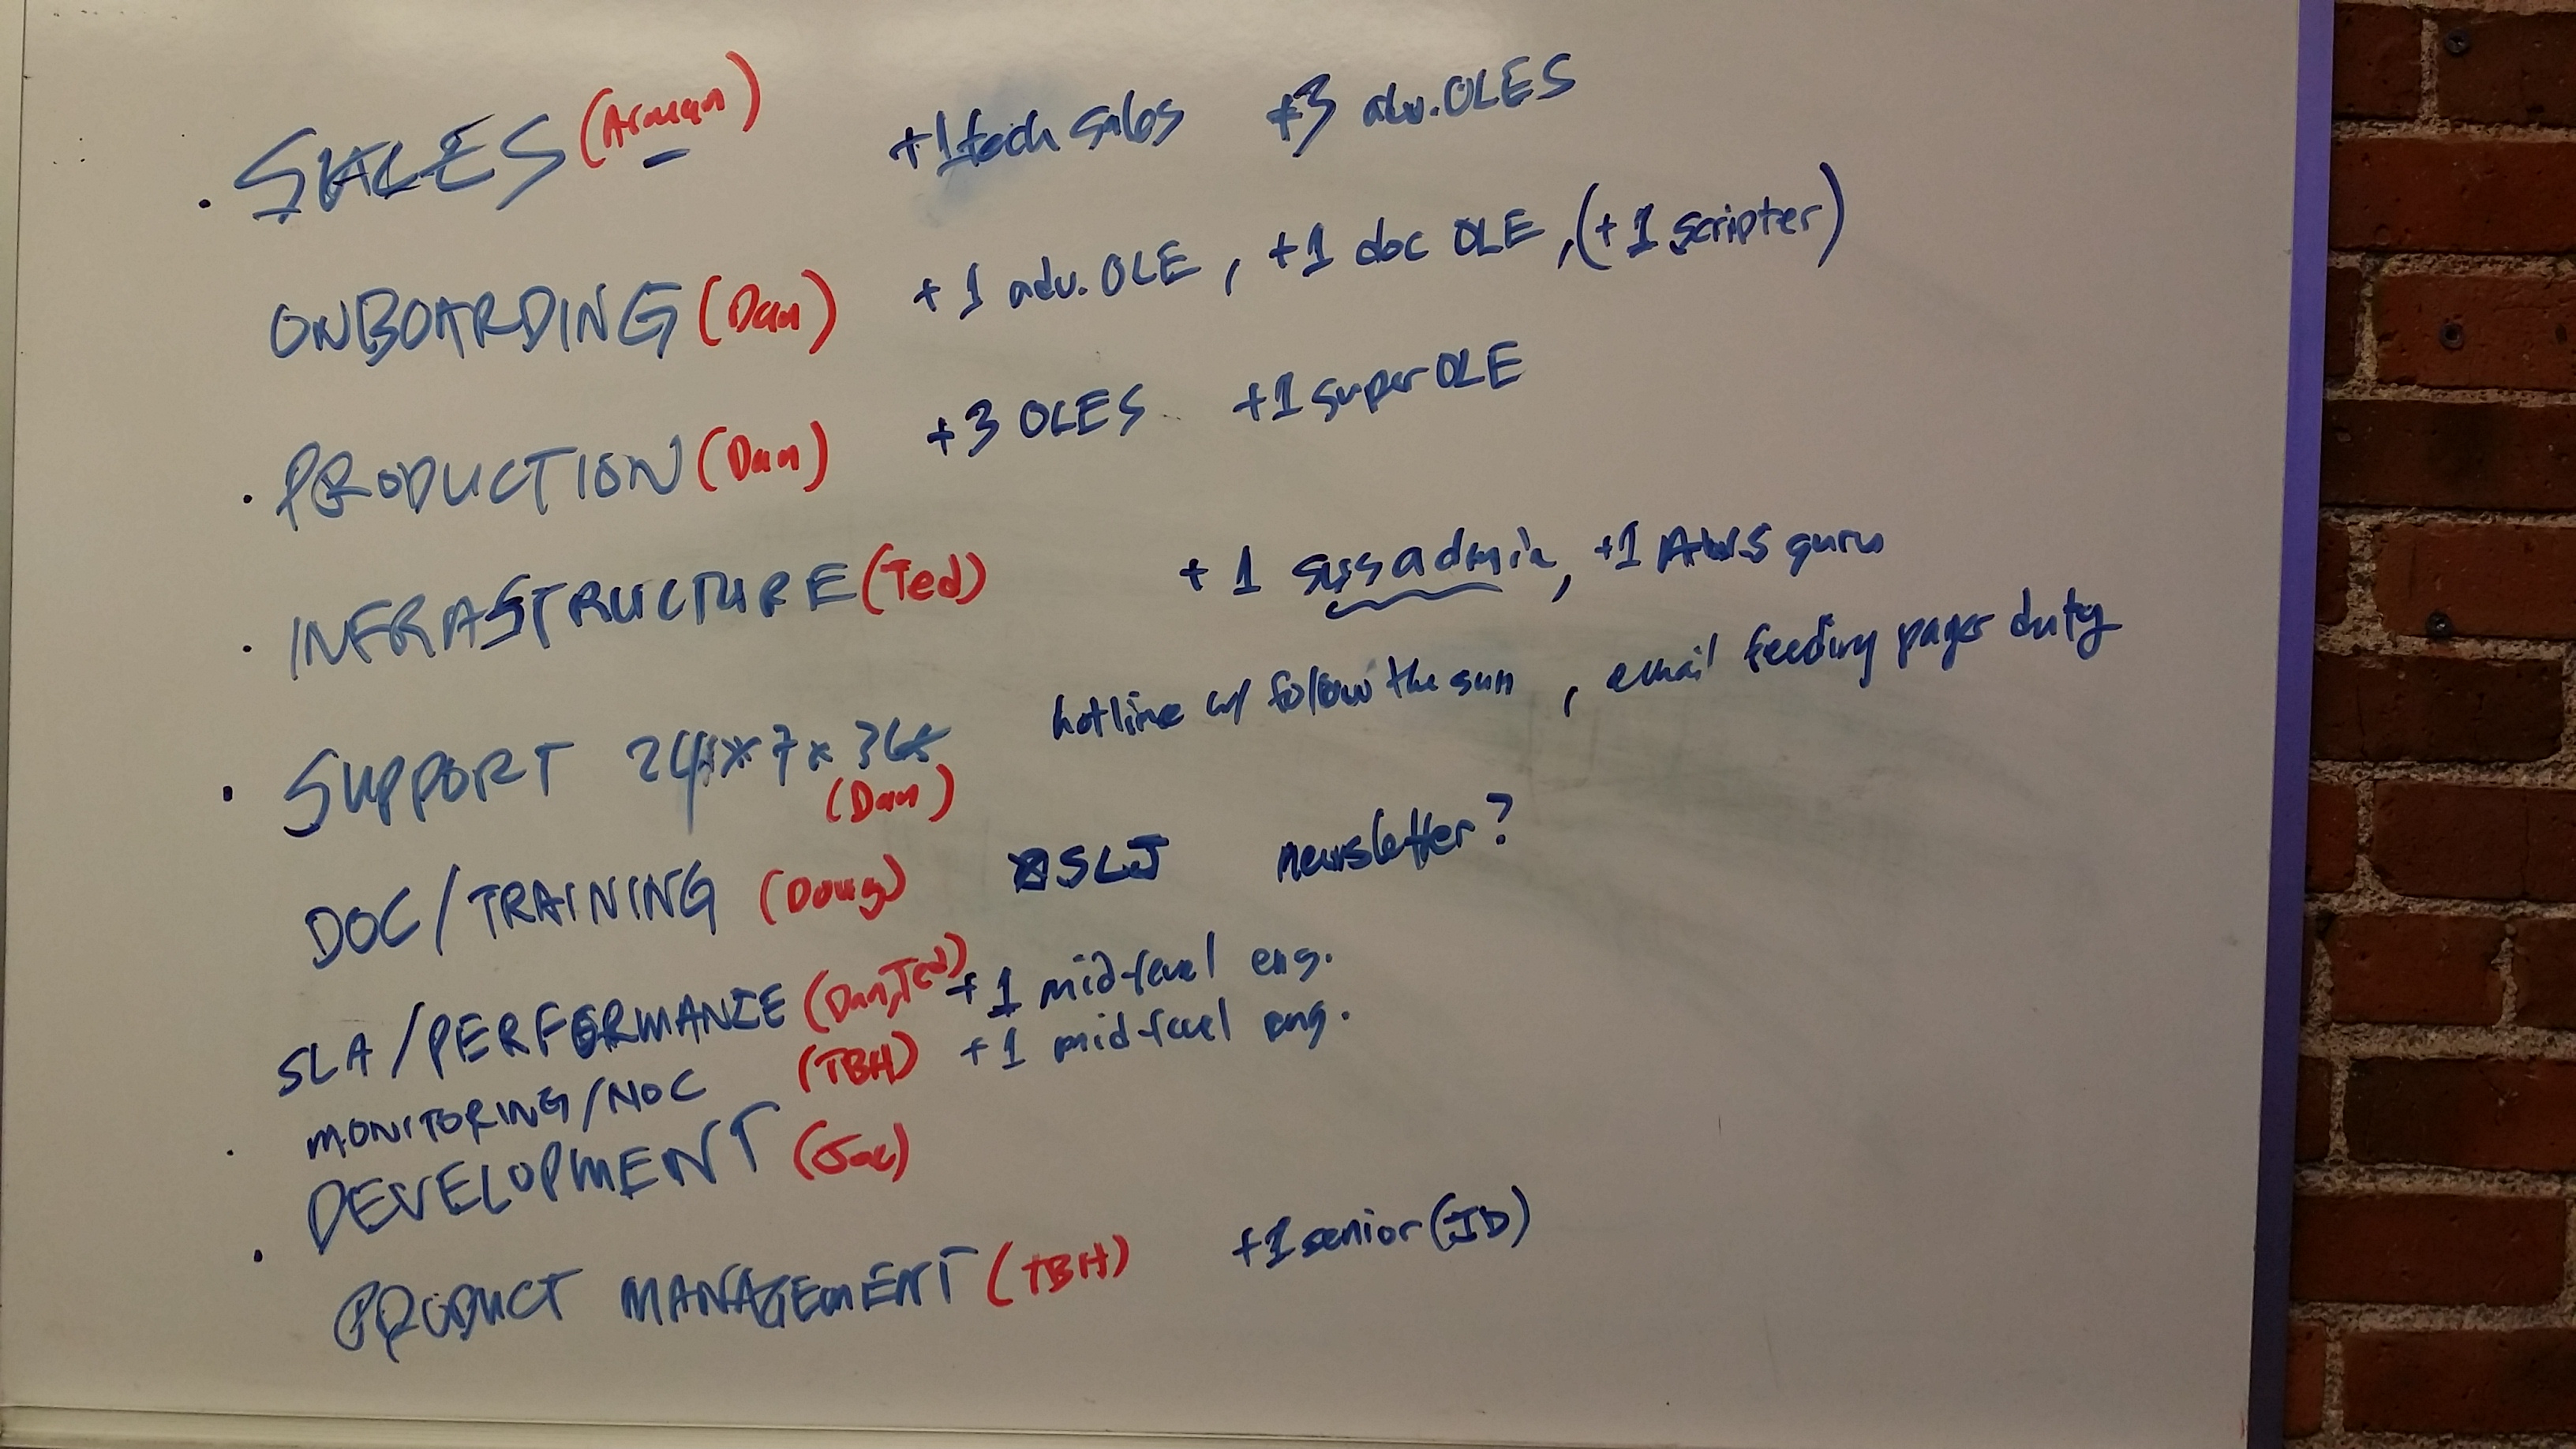 . SALES (Arman) +1 tech sales +3 adv. OLES
ONBOARDING (Dan) +1 adv. OLE, +1 doc OLE, (+1 scripter)
. PRODUCTION (Dan) +3 OLES +1 super OLE
. INFRASTRUCTURE (Ted) +1 sysadmin, +1 AWS guru
. SUPPORT 24x7x365 hotline w/ follow the sun, email feeding pager duty
(Dan)
DOC/TRAINING (Doug) SLJ newsletter?
SLA/PERFORMANCE (Dan, Ted) +1 mid-level eng.
MONITORING/NOC (TBH) +1 mid-level eng.
. DEVELOPMENT (Joe)
. PRODUCT MANAGEMENT (TBH) +1 senior (JD)